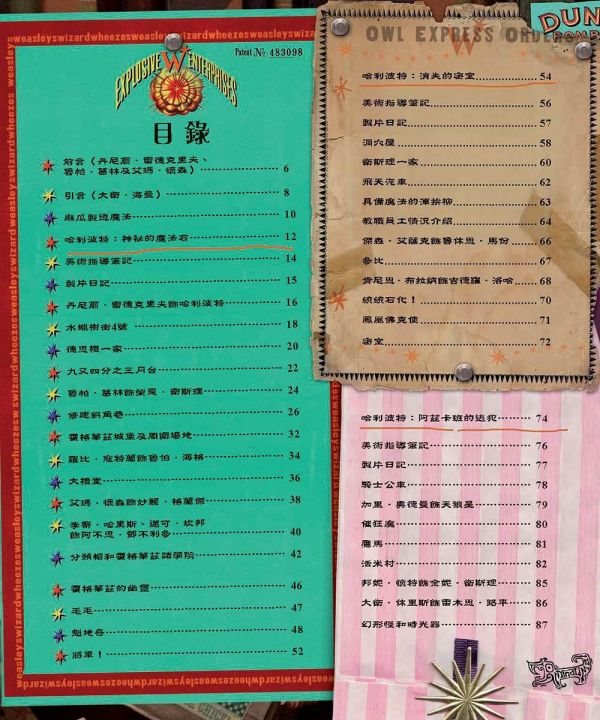 Patent .№ 483098
EXPLOSIVE W ENTERPRISES
目錄
前言（丹尼爾‧雷德克里夫、
魯帕‧葛林及艾瑪‧華森） 6
引言（大衛‧海曼） 8
麻瓜製造魔法 10
哈利波特：神秘的魔法石 12
美術指導筆記 14
製片日記 15
丹尼爾‧雷德克里夫飾哈利波特 16
水蠟樹街4號 18
德思禮一家 20
九又四分之三月台 22
魯帕‧葛林飾榮恩‧衛斯理 24
修建斜角巷 26
霍格華茲城堡及周圍場地 32
羅比‧寇特蘭飾魯伯‧海格 34
大禮堂 36
艾瑪‧華森飾妙麗‧格蘭傑 38
李察‧哈里斯、邁可‧坎邦
飾阿不思‧鄧不利多 40
分類帽和霍格華茲諸學院 42
霍格華茲的幽靈 46
毛毛 47
魁地奇 48
將軍！ 52
OWL EXPRESS ORDER
DUN
BOMB
哈利波特：消失的密室 54
美術指導筆記 56
製片日記 57
洞穴屋 58
衛斯理一家 60
飛天汽車 62
具備魔法的渾拚柳 63
教職員工情況介紹 64
傑森‧艾薩克飾魯休思‧馬份 66
多比 67
肯尼思‧布拉納飾吉德羅‧洛哈 68
統統石化！ 70
鳳凰佛克使 71
密室 72
哈利波特：阿茲卡班的逃犯 74
美術指導筆記 76
製片日記 77
騎士公車 78
加里‧奧德曼飾天狼星 79
催狂魔 80
鷹馬 81
活米村 82
邦妮‧懷特飾金妮‧衛斯理 85
大衛‧休里斯飾雷木思‧路平 86
幻形怪和時光器 87
weasleyswizardwheezes